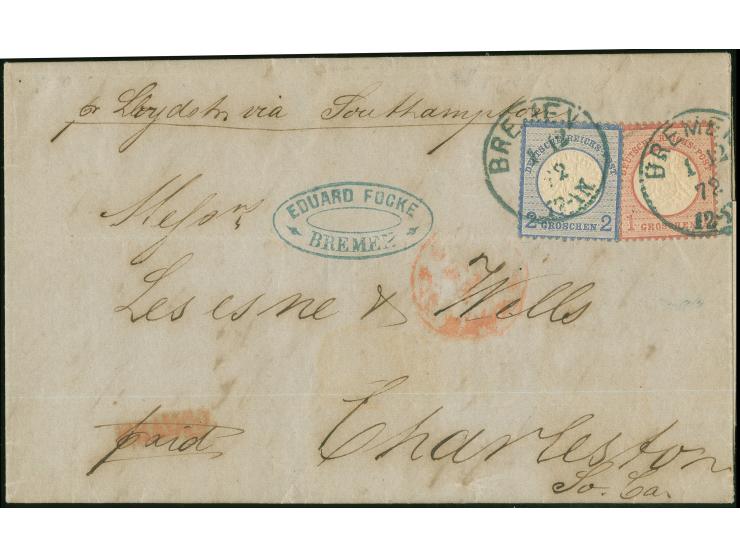 pr Lloydstr via Southampton
BREMEN
1 12
72
12-1N
DEUTSCHE REICHS-POST
2 GROSCHEN 2
BREMEN
1
72
DEUTSCHE REICHS-POST
1 GROSCHEN
EDUARD FOCKE
BREMEN
Messrs
Lesesne & Wells
paid
Charleston
So. Ca.